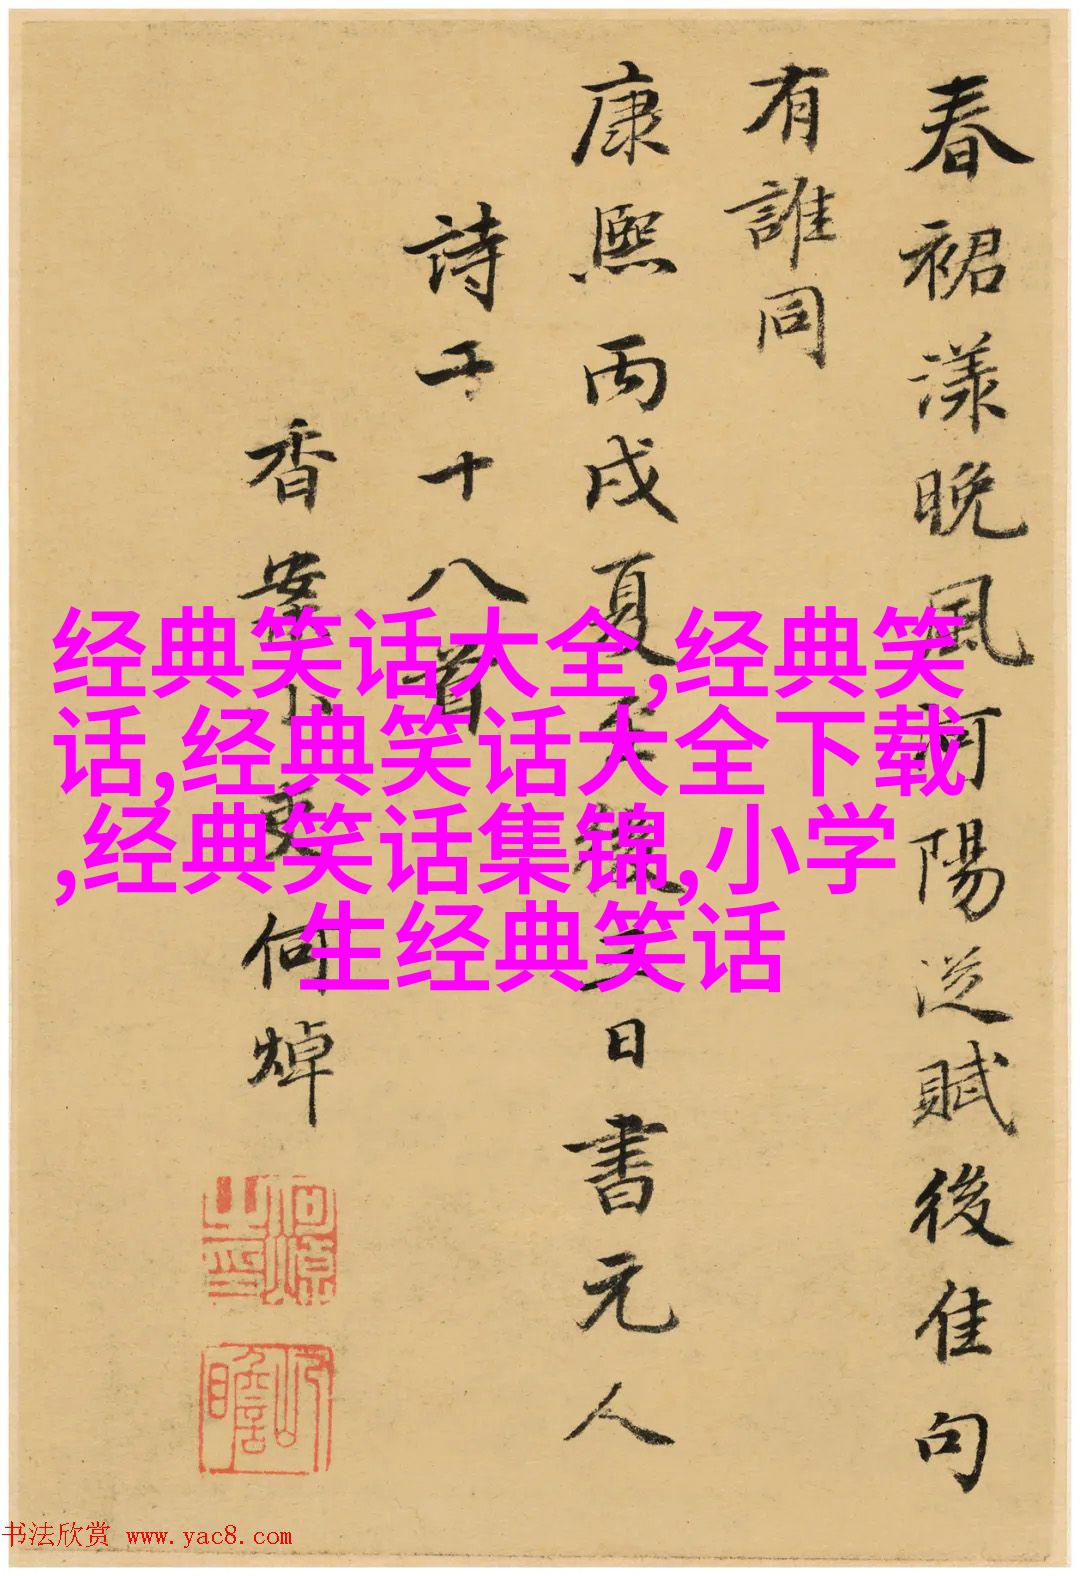 春裙漾晚風河陽從賦後佳句
有誰同
康熙丙戌夏至後三日書元人
詩二十八首
香案小吏何焯
经典笑话大全,经典笑
话,经典笑话大全下载
,经典笑话集锦,小学
生经典笑话
书法欣赏 www.yac8.com